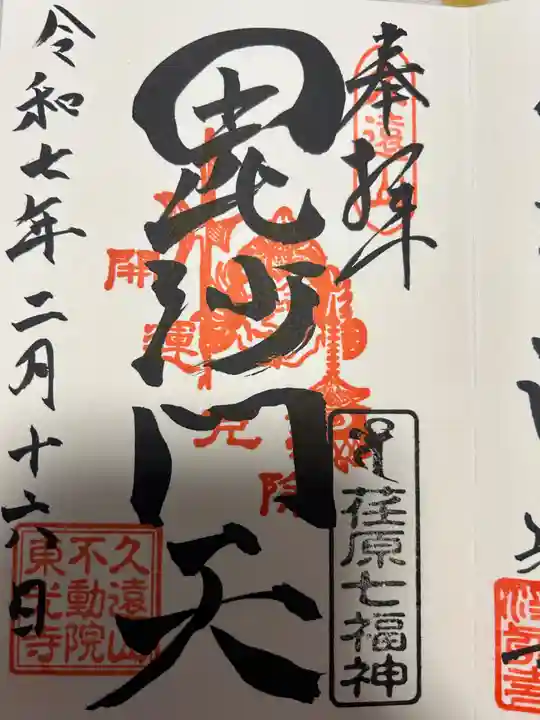 奉拝
久遠山
毘沙門天
開運
厄除
荏原七福神
令和七年二月十六日
久遠山
不動院
東光寺